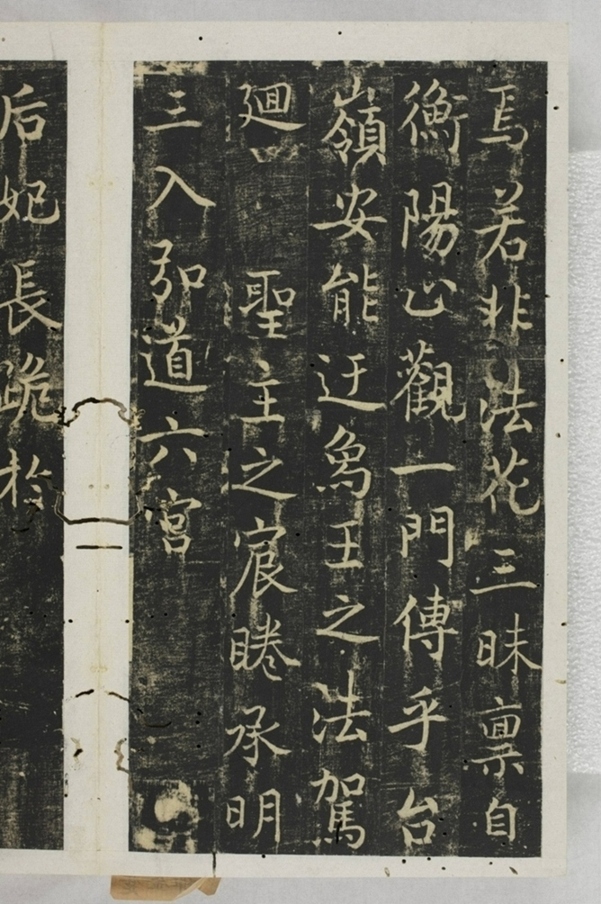 焉若非法花三昧禀自
衡陽止觀一門傳乎台
嶺安能迂象王之法駕
廻　聖主之宸睠承明
三入弘道六宮
后妃長跪於